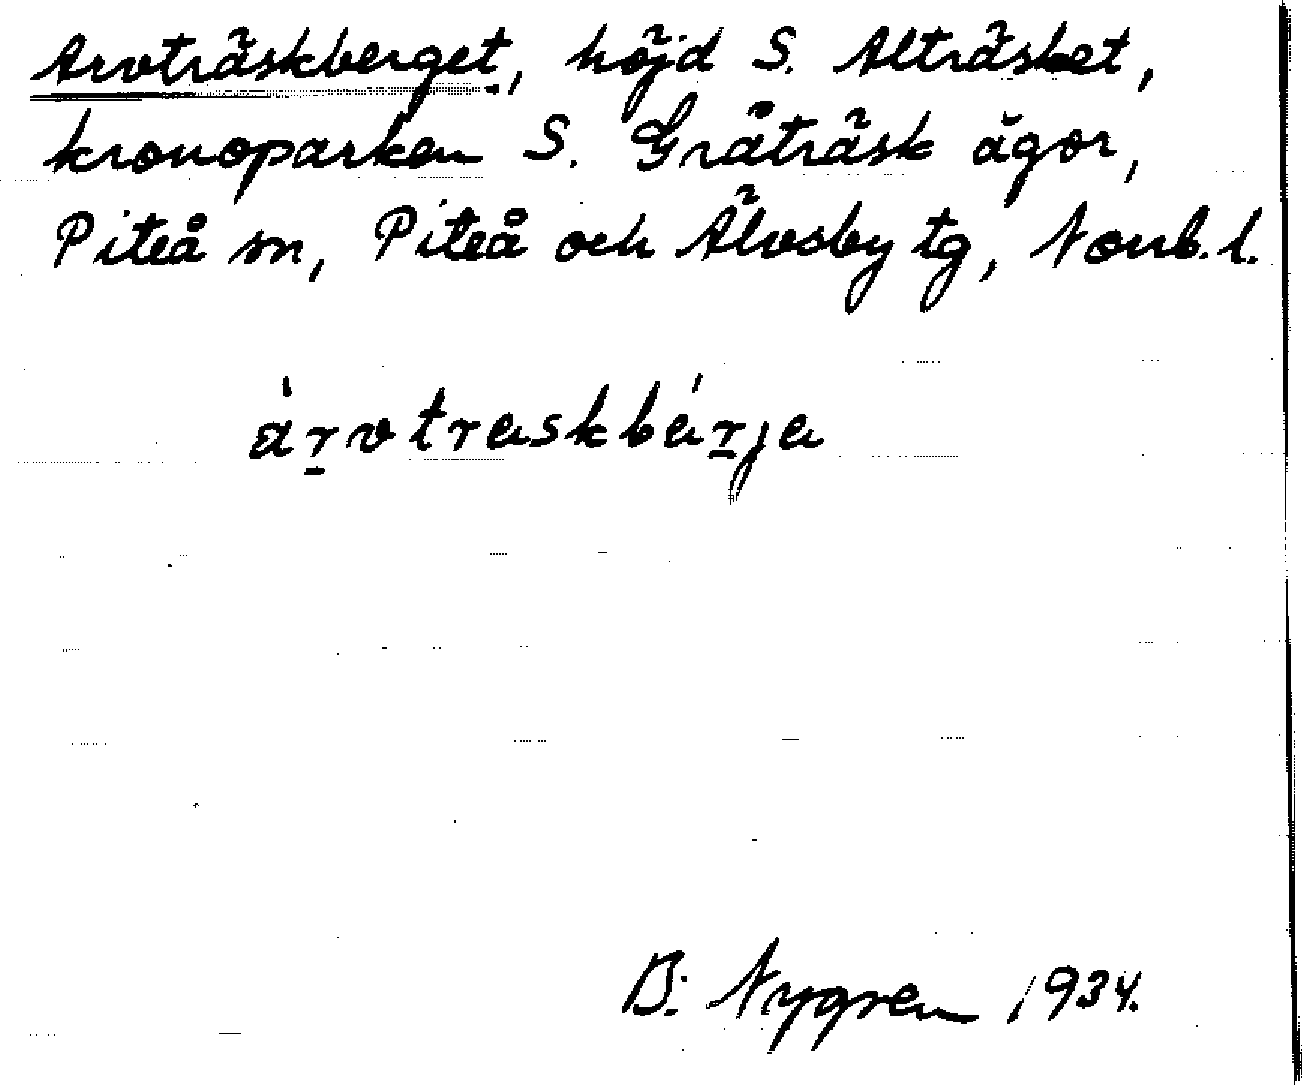 Arvträskberget, höjd S. Alträsket,
kronoparken S. Gråträsk ägor,
Piteå sn, Piteå och Älvsby tg, Norrb. l.
árvtraskbárja
B. Nygren 1934.